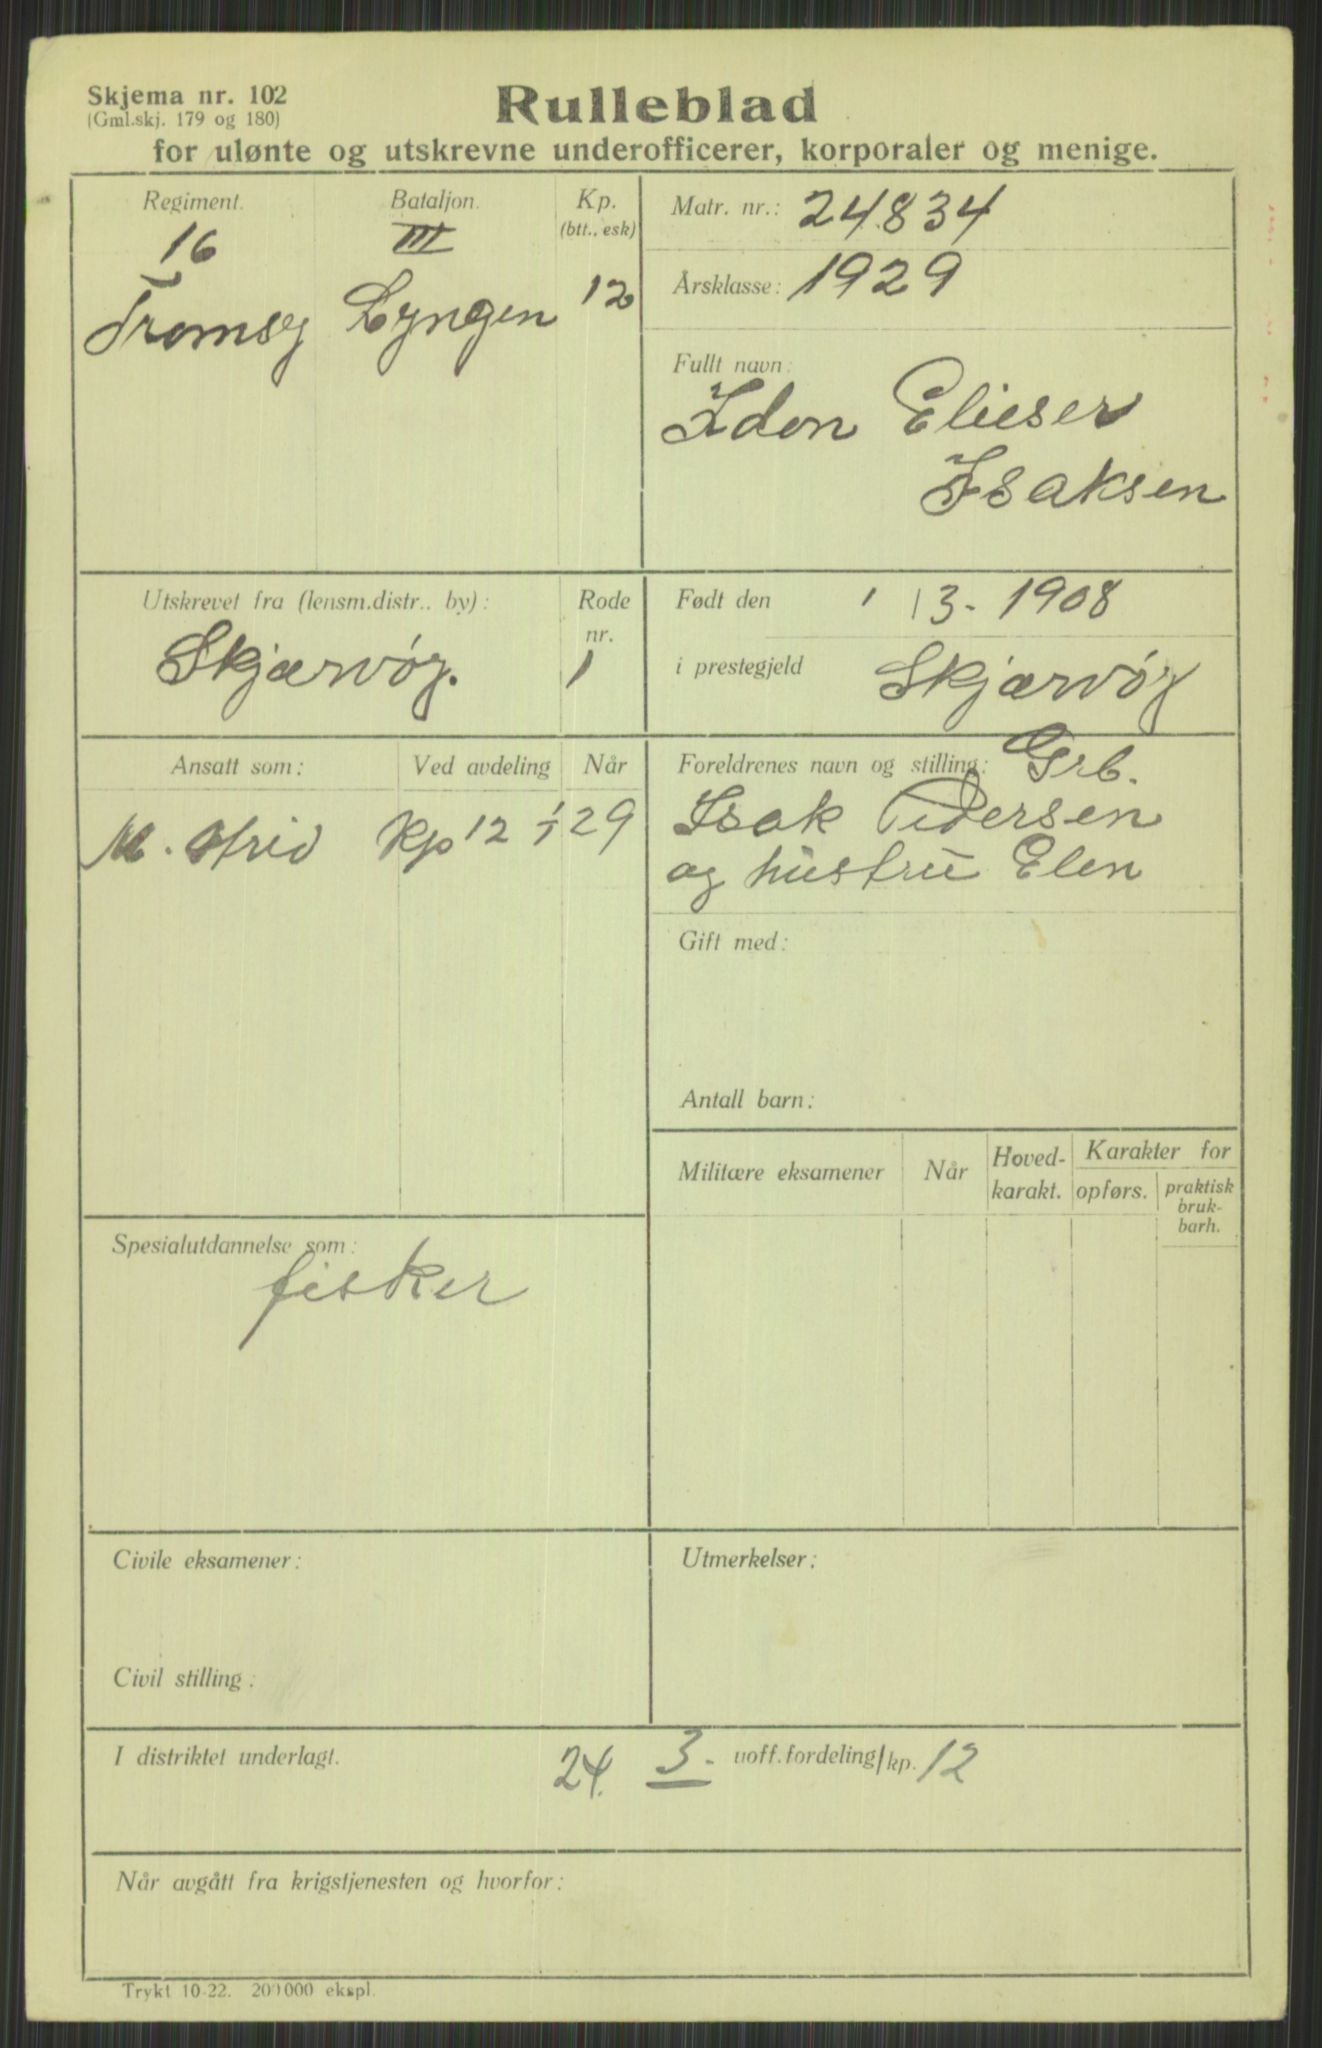 Skjema nr. 102
(Gml.skj. 179 og 180)
Rulleblad
for ulønte og utskrevne underofficerer, korporaler og menige.
Regiment.
16
Tromsø
Bataljon.
III
Lyngen
Kp.
(btt., esk)
12
Matr. nr.: 24834
Årsklasse: 1929
Fullt navn:
Idon Elieser
Isaksen
Utskrevet fra (lensm.distr.. by):
Skjærvøy.
Rode
nr.
1
Født den 1 / 3 - 1908
i prestegjeld Skjærvøy
Ansatt som: Ved avdeling Når
M. Kp 12 1/1 29
Foreldrenes navn og stilling: Grb.
Isak Pedersen
og hustru Elen
Gift med:
Antall barn:
Militære eksamener Når Hoved-
karakt. Karakter for
opførs. praktisk
bruk-
barh.
Spesialutdannelse som:
fisker
Civile eksamener:
Civil stilling:
Utmerkelser:
I distriktet underlagt. 24. 3. uoff.fordeling/kp. 12
Når avgått fra krigstjenesten og hvorfor:
Trykt 10-22. 200000 ekspl.